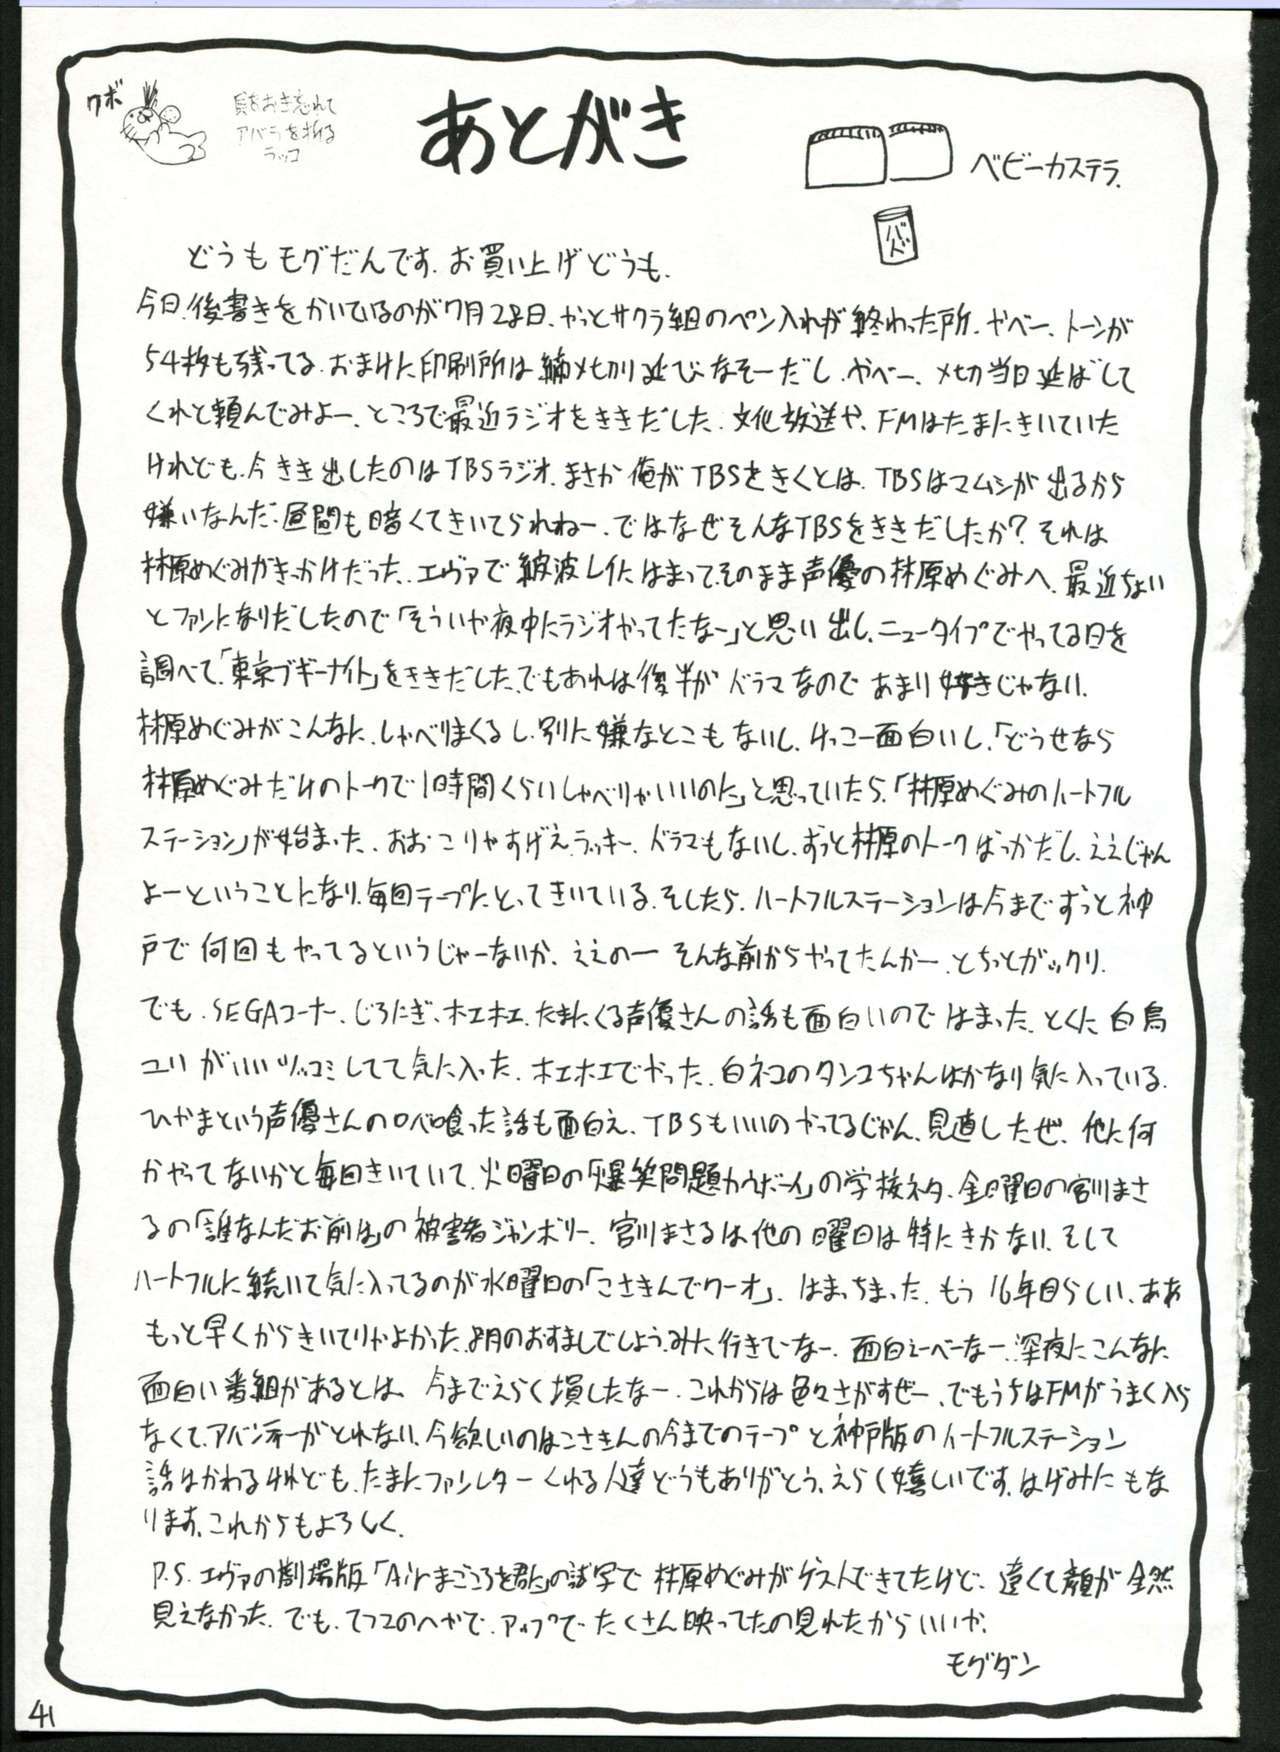 クボ
貝をおき忘れて
アバラを折る
ラッコ
あとがき
ベビーカステラ.
バド
どうもモグだんです.お買い上げどうも.
今日.後書きをかいているのが7月28日.やっとサクラ組のペン入れが終わった所.やべー、トーンが
54枚も残ってる.おまけに印刷所は締メ切り延びなそーだし.やべー、メ切当日延ばして
くれと頼んでみよー、ところで最近ラジオをききだした.文化放送や、FMはたまにきいていた
けれども.今きき出したのはTBSラジオ.まさか俺がTBSをきくとは.TBSはマムシが出るから
嫌いなんだ.昼間も暗くてきいてられねー.ではなぜそんなTBSをききだしたか?それは
林原めぐみがきっかけだった.エヴァで綾波レイにはまって.そのまま声優の林原めぐみへ.最近ちょい
とファンになりだしたので「そういや夜中にラジオやってたなー」と思い出し.ニュータイプでやってる日を
調べて.「東京ブギーナイト」をききだした.でもあれは後半がドラマなのであまり好きじゃない.
林原めぐみがこんなに.しゃべりまくるし.別に嫌なとこもないし、けっこー面白いし、「どうせなら
林原めぐみだけのトークで1時間くらいしゃべりゃいいのに」と思っていたら.「林原めぐみのハートフル
ステーション」が始まった.おおこりゃすげえラッキー、ドラマもないし.ずっと林原のトークばっかだし.ええじゃん
よーということになり.毎回テープにとってきいている.そしたら.ハートフルステーションは今までずっと神
戸で何回もやってるというじゃーないか、ええのー そんな前からやってたんかー.とちっとガックリ.
でも.SEGAコーナー、じろたぎ、ホエホエ.たまにくる声優さんの話も面白いのではまった.とくに白鳥
ユリがいいツッコミしてて気に入った.ホエホエでやった.白ネコのタンコちゃんはかなり気に入っている.
ひやまという声優さんのロベ喰った話も面白え.TBSもいいのやってるじゃん.見直したぜ.他に何
かやってないかと毎回きいていて.火曜日の「爆笑問題カウボーイ」の学校ネタ.金曜日の宮川まさ
るの「誰なんだお前は」の被害者ジャンボリー.宮川まさるは他の曜日は特にきかない.そして
ハートフルに続いて気に入ってるのが水曜日の「こさきんでワーオ」.はまっちまった.もう16年目らしい、ああ
もっと早くからきいてりゃよかった.8月のおすましでしょう.みに行きてーなー.面白えーべーなー.深夜にこんなに
面白い番組があるとは 今までえらく損したなー.これからは色々さがすぜー、でもうちはFMがうまく入ら
なくて.アバンティーがとれない.今欲しいのはこさきんの今までのテープと神戸版のハートフルステーション
話はかわるけれども.たまにファンレターくれる人達どうもありがとう.えらく嬉しいです.はげみにもな
ります.これからもよろしく.
P.S.エヴァの劇場版「Airまごころを君に」の試写で林原めぐみがゲストできてたけど、遠くて顔が全然
見えなかった.でも.てつこのへやで.アップでたくさん映ってたの見れたからいいや.
モグダン
41